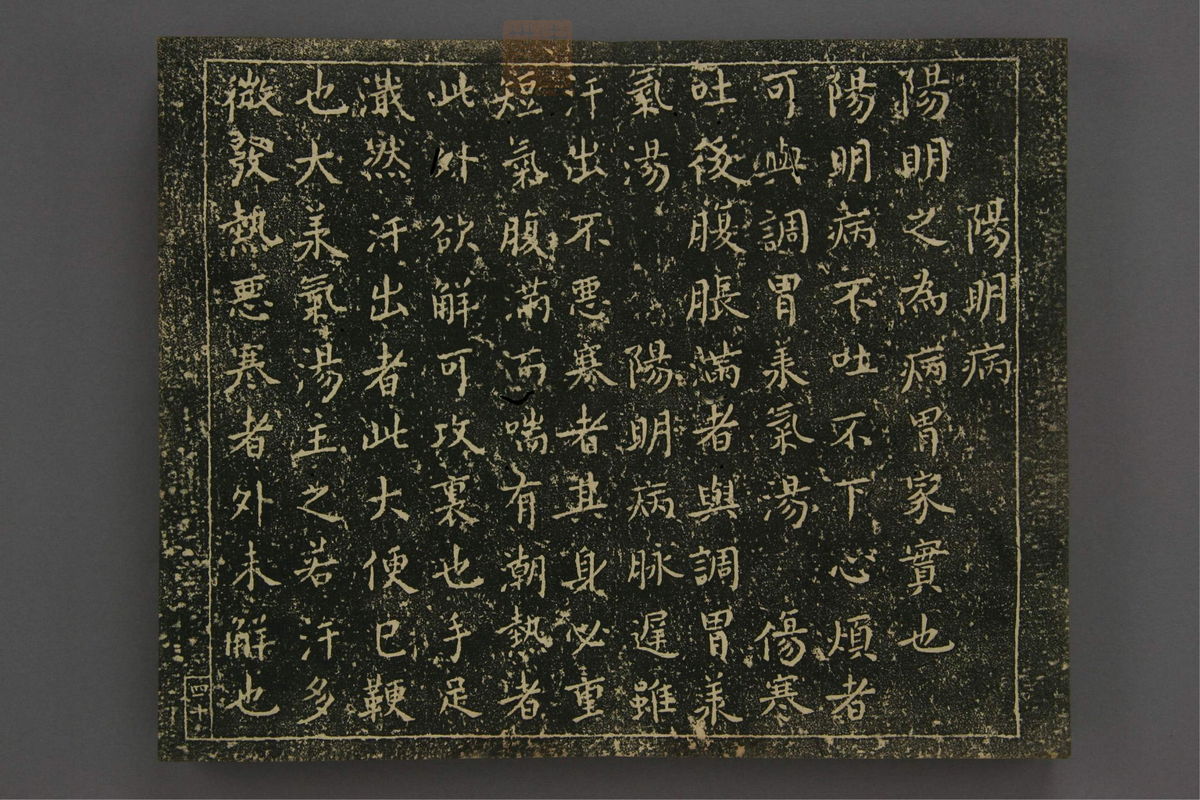 陽明病
陽明之為病胃家實也
陽明病不吐不下心煩者
可與調胃羕氣湯 傷寒
吐後腹脹滿者與調胃羕
氣湯 陽明病脉遲雖
汗出不惡寒者其身必重
短氣腹滿而喘有潮熱者
此外欲解可攻裏也手足
濈然汗出者此大便已鞕
也大羕氣湯主之若汗多
微發熱惡寒者外未解也
四十